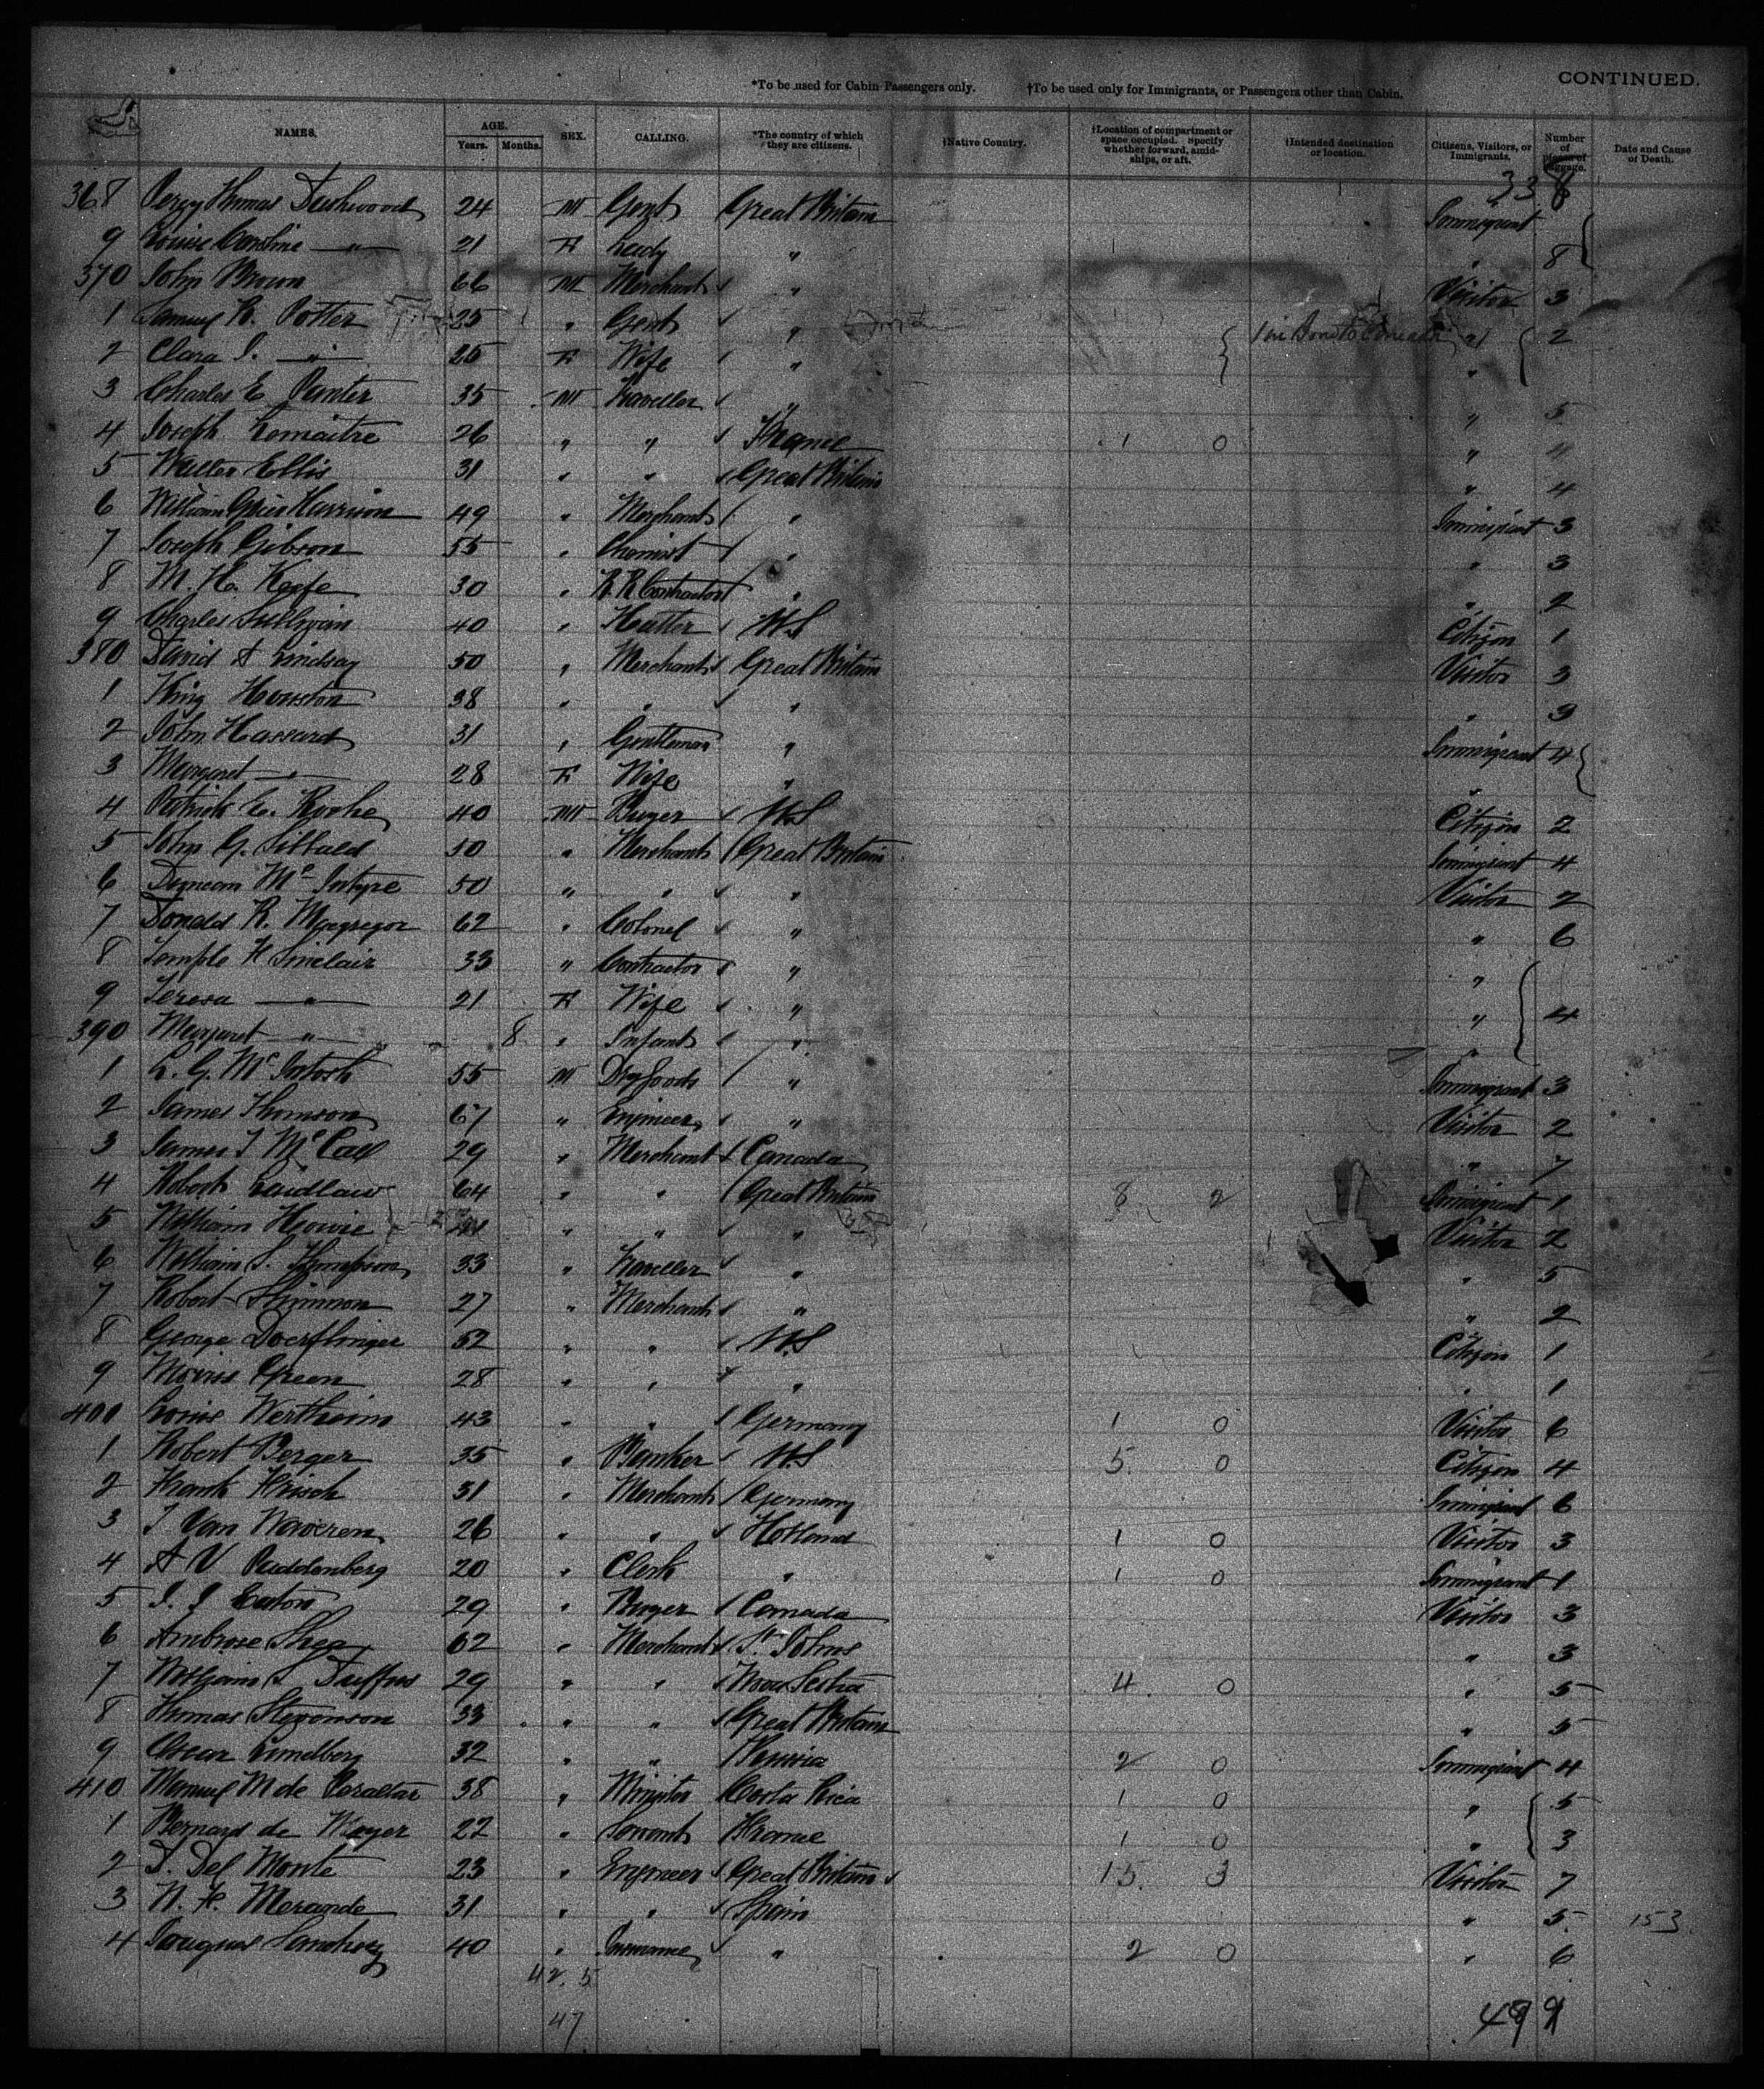 CONTINUED.
*To be used for Cabin Passengers only. †To be used only for Immigrants, or Passengers other than Cabin.
NAMES. AGE. Years. Months. SEX. CALLING. *The country of which they are citizens. †Native Country. †Location of compartment or space occupied. Specify whether forward, amidships, or aft. †Intended destination or location. Citizens, Visitors, or Immigrants. Number of pieces of baggage. Date and Cause of Death.
338
368 Percy Thomas Dashwood 24 M Gent Great Britain Immigrant
9 Louise Caroline — " — 21 F Lady " " 8
370 John Brown 66 M Merchant " Visitor 3
1 Samuel R. Potter 25 " Gent " " 2
2 Clara I. — " — 25 F Wife " "
3 Charles E. Punter 35 M Traveller " " 5
4 Joseph Lemaitre 26 " " France 1 0 " 4
5 Walter Ellis 31 " " Great Britain " 4
6 William Harrison 49 " Merchant " Immigrant 3
7 Joseph Gibson 55 " Chemist " " 3
8 M. H. Keefe 30 " R. R. Contractor " " 2
9 Charles Sullivan 40 " Hatter U.S Citizen 1
380 David A Lindsay 50 " Merchant Great Britain Visitor 3
1 King Houston 38 " " " " 3
2 John Hassard 31 " Gentleman " Immigrant 4
3 Margaret — " — 28 F Wife " "
4 Patrick C. Roche 40 M Buyer U.S Citizen 2
5 John G. Sibbald 50 " Merchant Great Britain Immigrant 4
6 Duncan McIntyre 50 " " " Visitor 2
7 Donald R. Macgregor 62 " Colonel " " 6
8 Temple F Sinclair 33 " Contractor " "
9 Teresa — " — 21 F Wife " " 4
390 Margaret — " — 8 " Infant " "
1 L. G. McIntosh 55 M Dry Goods " Immigrant 3
2 James Thomson 67 " Engineer " Visitor 2
3 James T McCall 29 " Merchant Canada " 7
4 Robert Laidlaw 64 " " Great Britain 8 2 Immigrant 1
5 William Howie " " " Visitor 2
6 William S. Thompson 33 " Traveller " " 5
7 Robert Shinnon 27 " Merchant " " 2
8 George Doerflinger 52 " " U.S Citizen 1
9 Morris Green 28 " " " " 1
400 Louis Wertheim 43 " " Germany 1 0 Visitor 6
1 Robert Berger 35 " Banker U.S 5 0 Citizen 4
2 Frank Hirsch 31 " Merchant Germany Immigrant 6
3 J Van Waveren 26 " " Holland 1 0 Visitor 3
4 A V Puddenberg 20 " Clerk " 1 0 Immigrant 1
5 J. J Eaton 29 " Buyer Canada Visitor 3
6 Ambrose Shea 62 " Merchant St. Johns " 3
7 William L Duffus 29 " " Nova Scotia 4 0 " 5
8 Thomas Stevenson 33 " " Great Britain " 5
9 Oscar Lundberg 32 " " Russia 2 0 Immigrant 4
410 Manuel M de Peraltar 38 " Minister Costa Rica 1 0 " 5
1 Bernard de Moyer 22 " Servant France 1 0 " 3
2 D. Del Monte 23 " Engineer Great Britain 15 3 Visitor 7
3 N. F. Merande 31 " " Spain " 5 153
4 Sanchez 40 " Insurance " 2 0 " 6
42 5
47
499